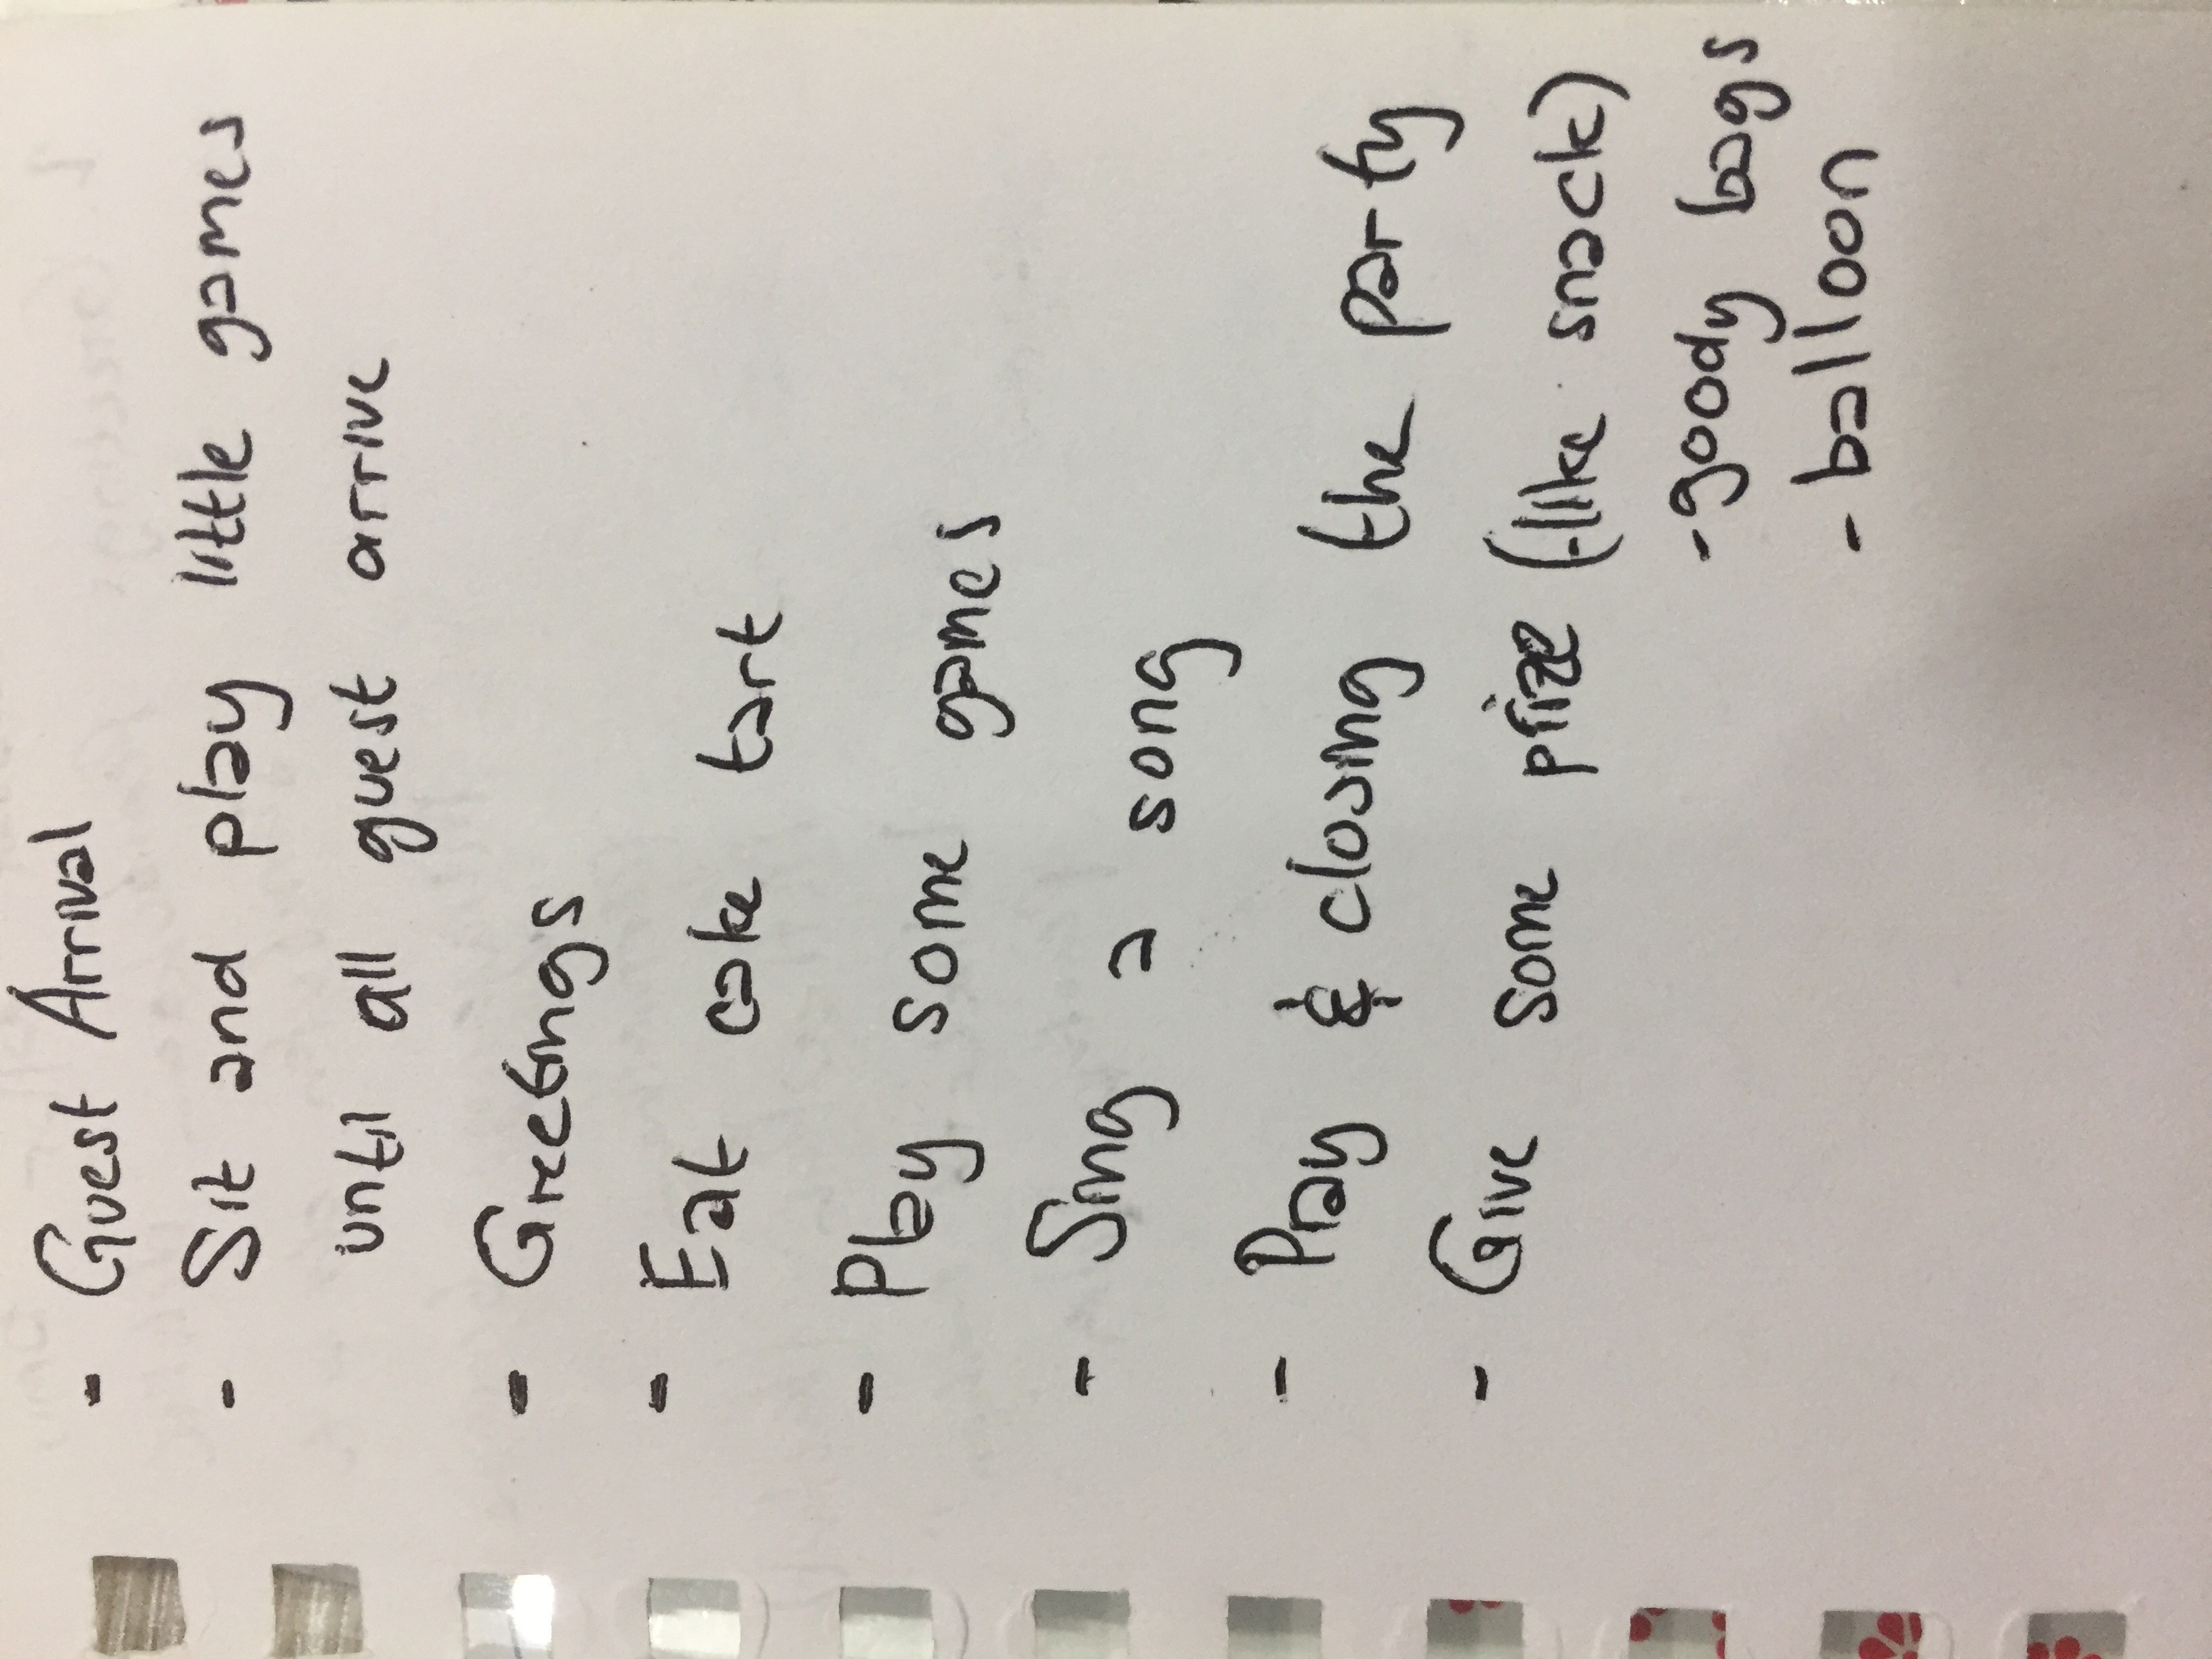 - Guest Arrival
- Sit and play little games
until all guest arrive
- Greetings
- Eat cake tart
- Play some games
- Sing a song
- Pray & closing the party
- Give some prize (-like snack)
- goody bags
- balloon